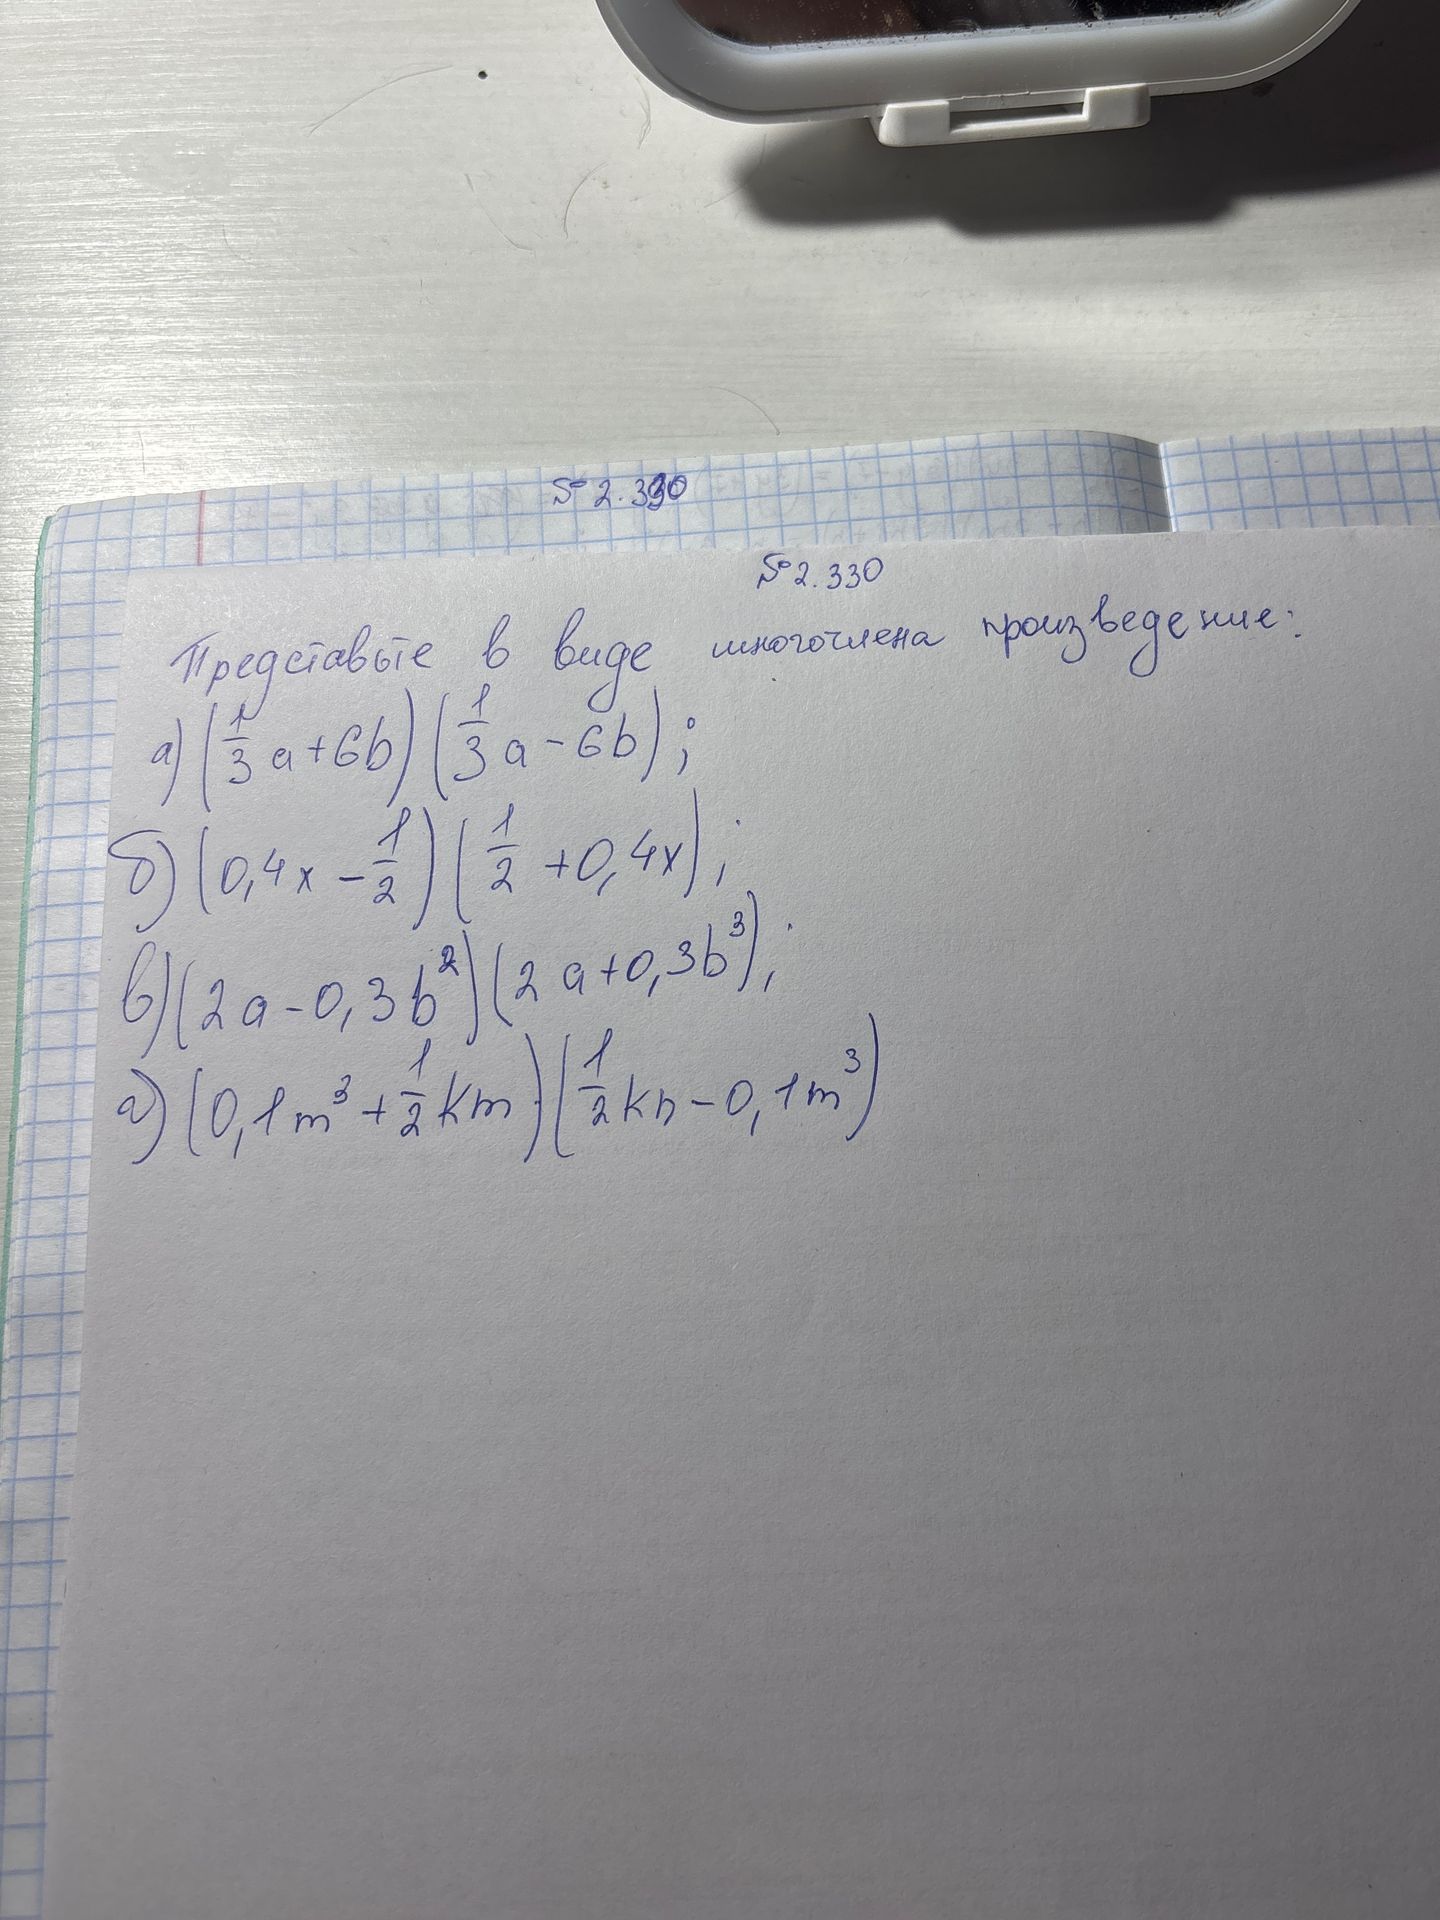 № 2.330
№ 2.330
Представьте в виде многочлена произведение:
а) (1/3 a + 6b) (1/3 a - 6b);
б) (0,4x - 1/2) (1/2 + 0,4x);
в) (2a - 0,3b²) (2a + 0,3b³);
г) (0,1m³ + 1/2 km) (1/2 kn - 0,1m³)